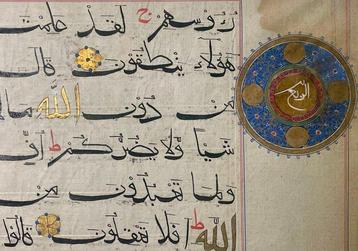 رُءُوسهم ج لقد علمت
هؤلاء ينطقون قال
من دون الله مالا
شيا ولا يضركم ط افّ
ولما تعبدون من
الله ط افلا تعقلون قالوا